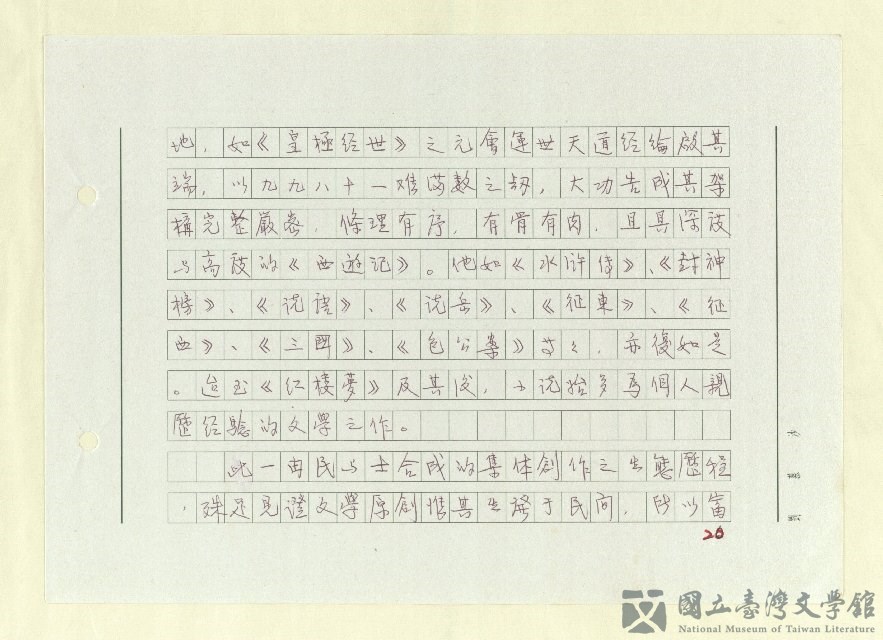 地，如《皇極经世》之元會運世天道经綸啟其
端，以九九八十一难满數之劫，大功告成其架
構完整嚴密，條理有序，有骨有肉，且具深度
与高度的《西遊记》。他如《水浒传》、《封神
榜》、《说唐》、《说岳》、《征東》、《征
西》、《三國》、《包公案》等々，亦復如是
。迨至《红楼夢》及其後，小说始多為個人親
歷经驗的文學之作。
此一由民与士合成的集体創作之生態歷程
，殊足見證文學原創惟其生發于民间，所以富
20
國立臺灣文學館
National Museum of Taiwan Literature